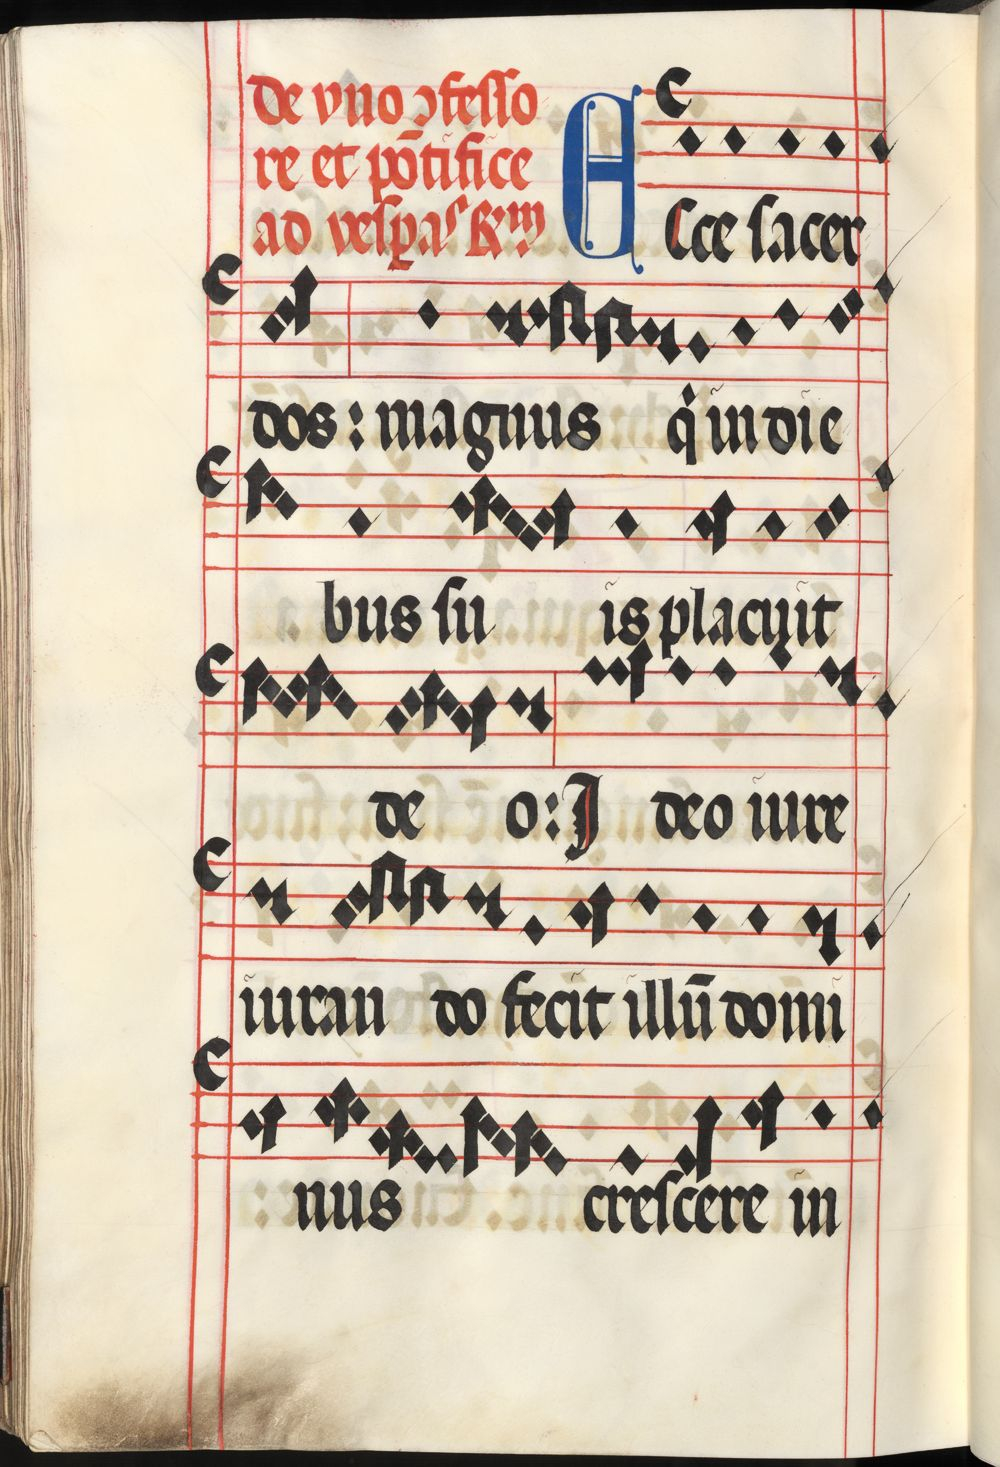 de vno ꝯfesso
re et põtifice
ad vesꝑas R.m
Ecce sacer
dos: magnus q in die
bus su is placuit
de o: I deo iure
iuran do fecit illū domi
nus crescere in